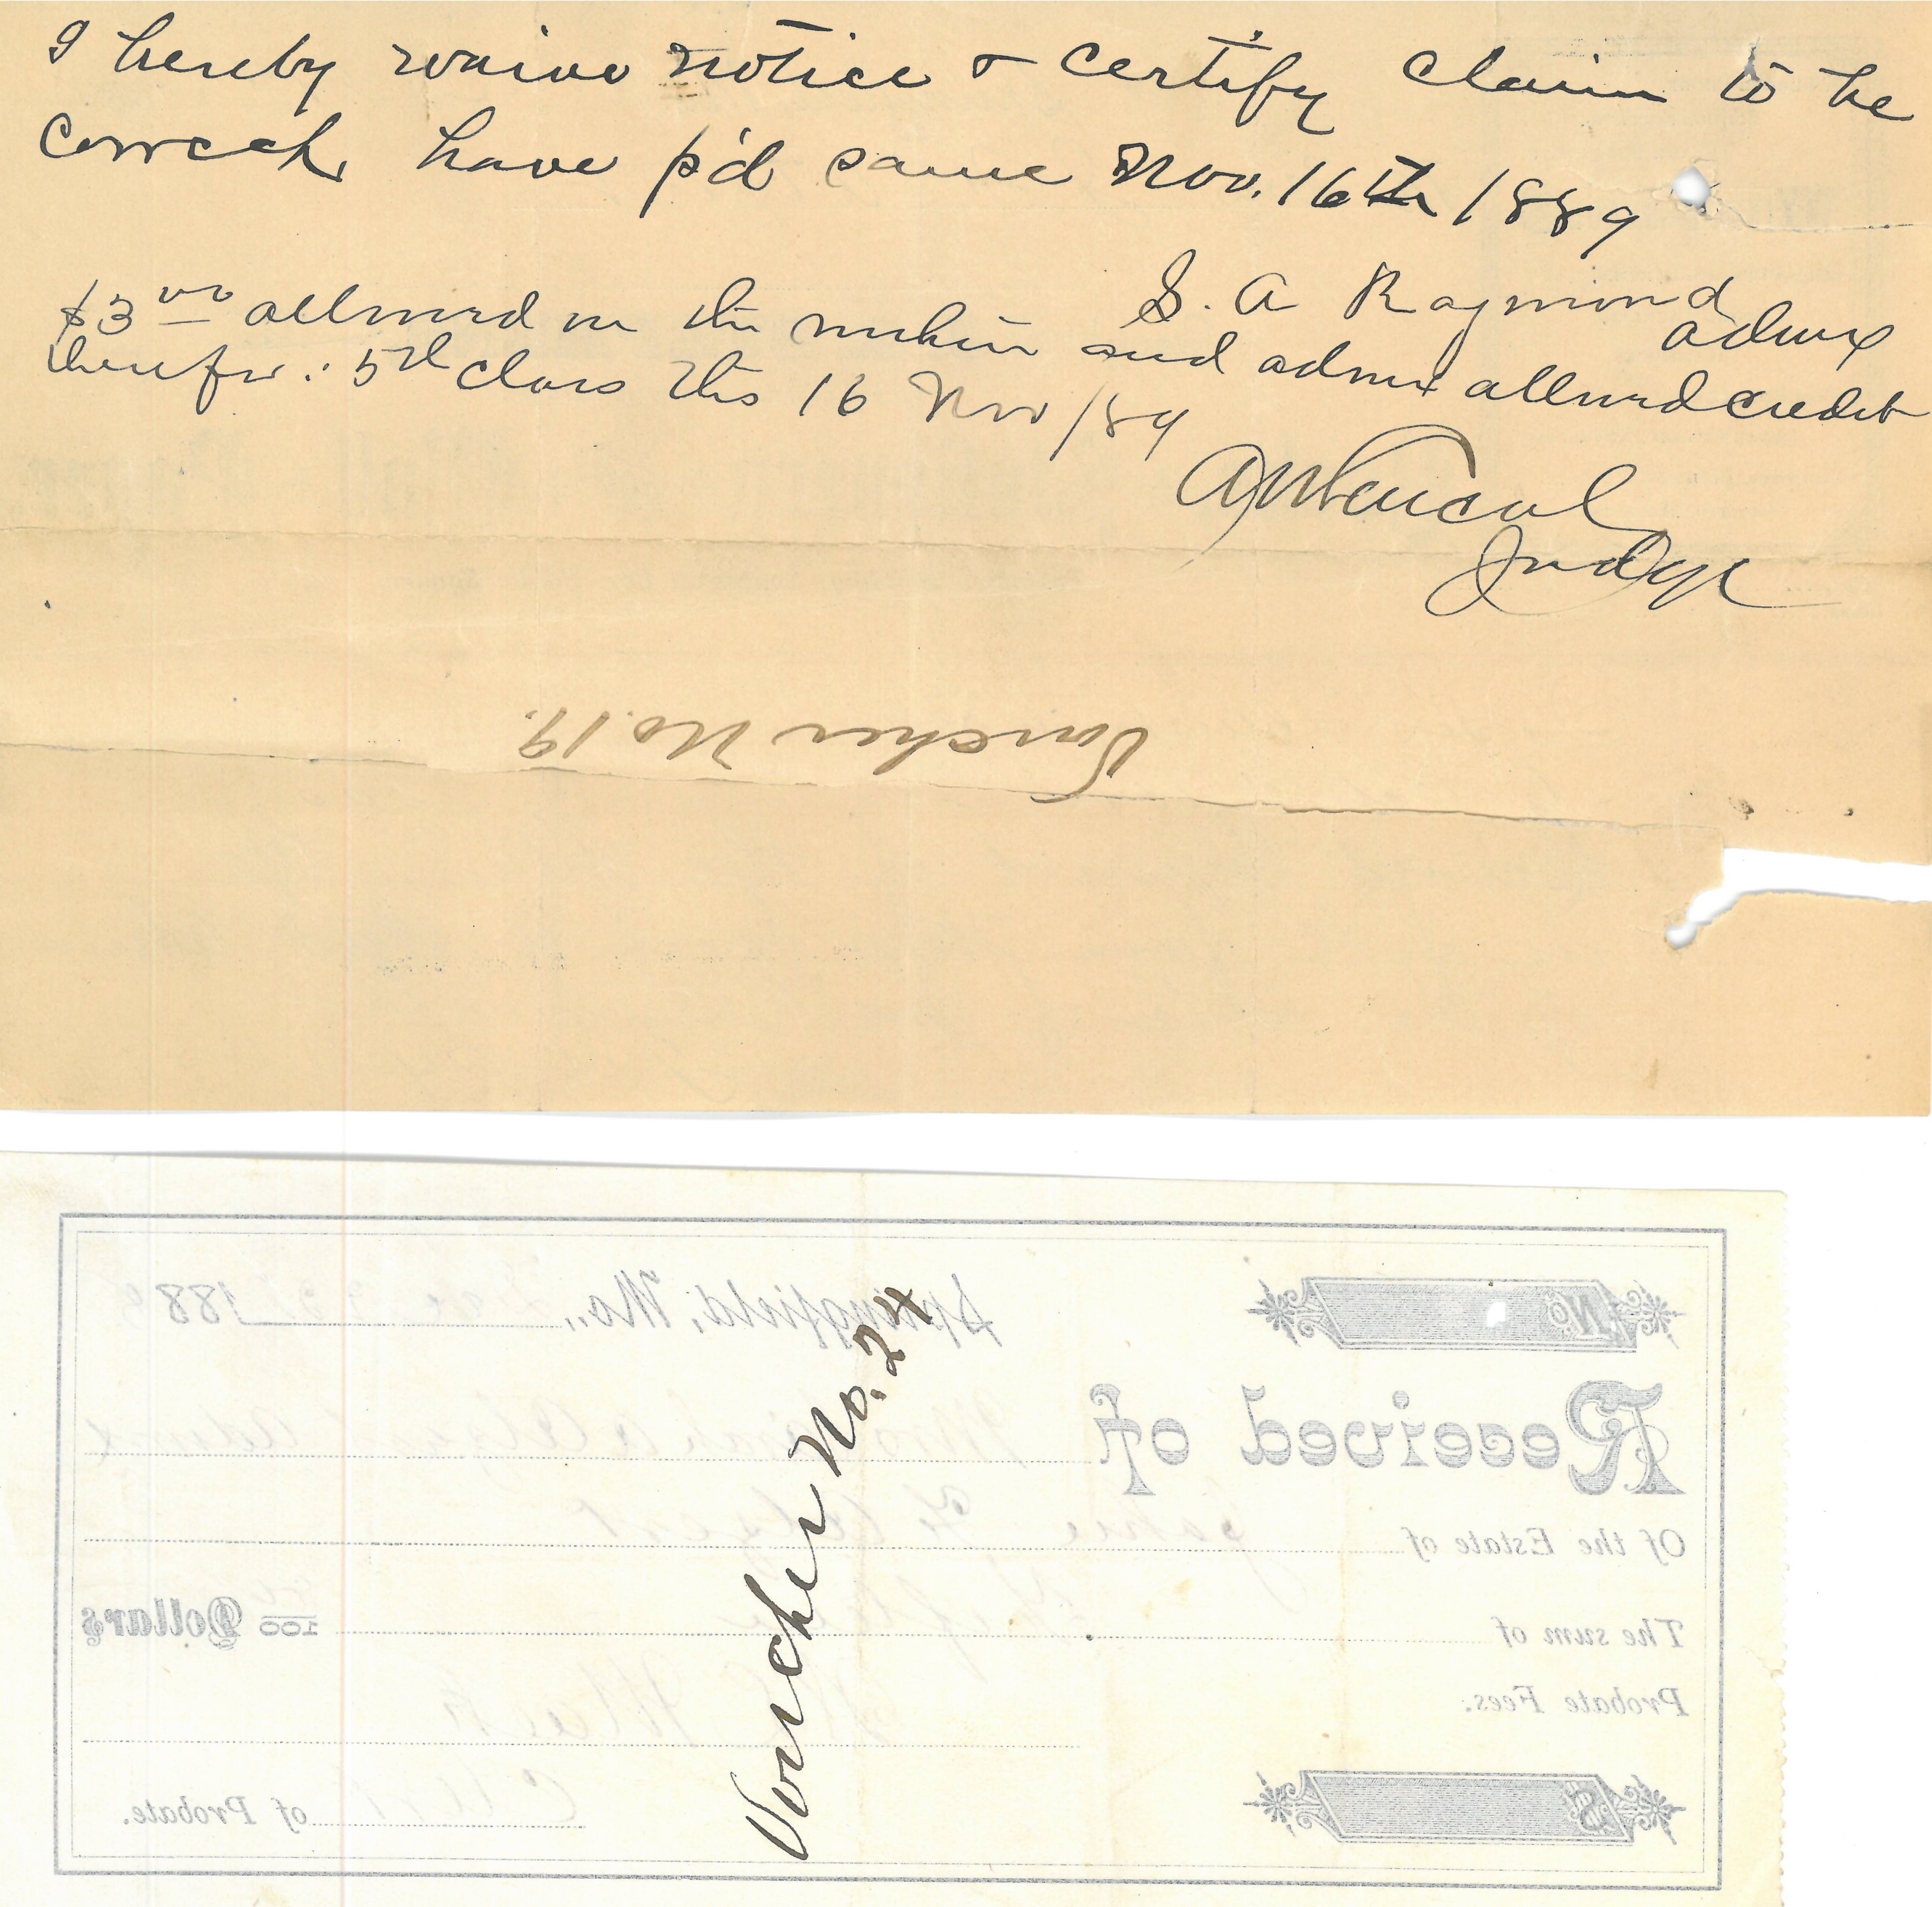 I hereby waive notice & certify claim to be
correct have p'd same Nov. 16th 1889
S. A Raymond
admx
$3 00 allowed on the within and admx allowed credit
therefor : 5th class this 16 Nov /89
Judge
Voucher No. 19.
No
Springfield, Mo., 188
Received of
Of the Estate of
The sum of 100 Dollars
Probate Fees:
$
of Probate.
Voucher No. 24